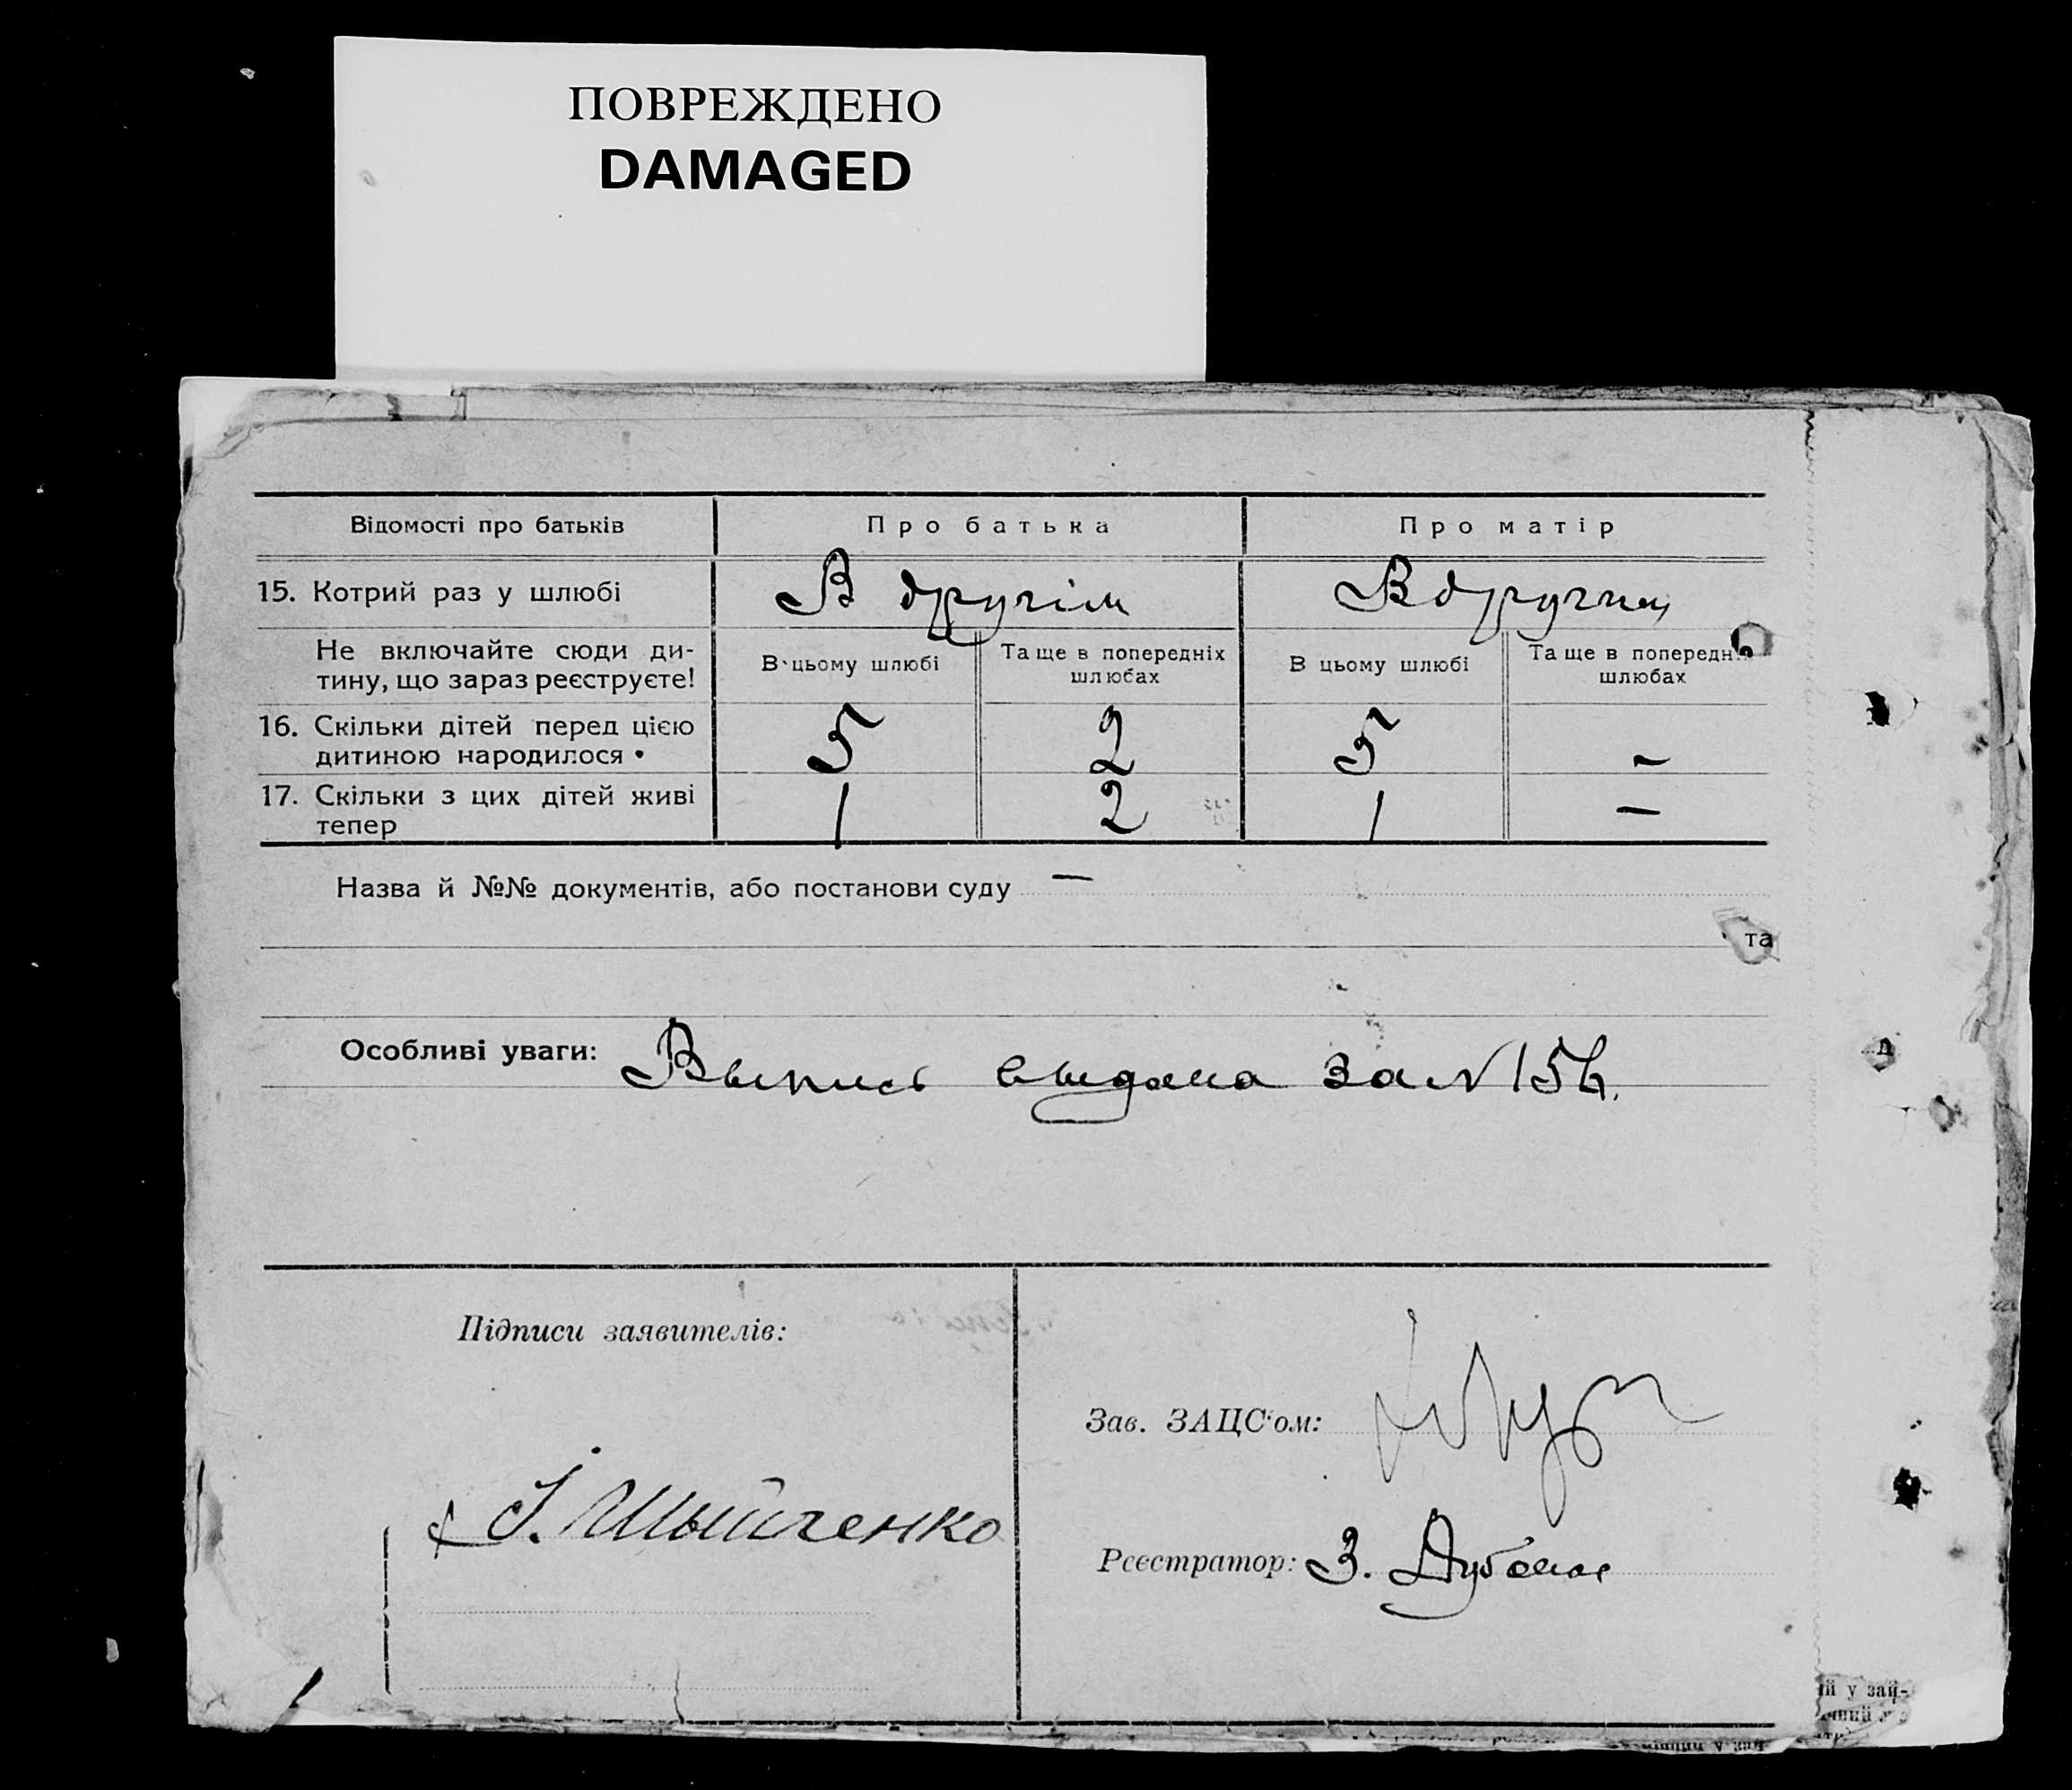 ПОВРЕЖДЕНО
DAMAGED
Відомості про батьків
Про батька
Про матір
15. Котрий раз у шлюбі
В другім
В другим
Не включайте сюди ди-
тину, що зараз реєструєте!
В цьому шлюбі
Та ще в попередніх
шлюбах
В цьому шлюбі
Та ще в попередн
шлюбах
16. Скільки дітей перед цією
дитиною народилося •
5
2
5
–
17. Скільки з цих дітей живі
тепер
1
2
1
–
Назва й №№ документів, або постанови суду —
та
Особливі уваги: Выпись выдана за N 154.
д
Підписи заявителів:
Зав. ЗАЦС'ом:
І.
Реєстратор: З.
й у зай-